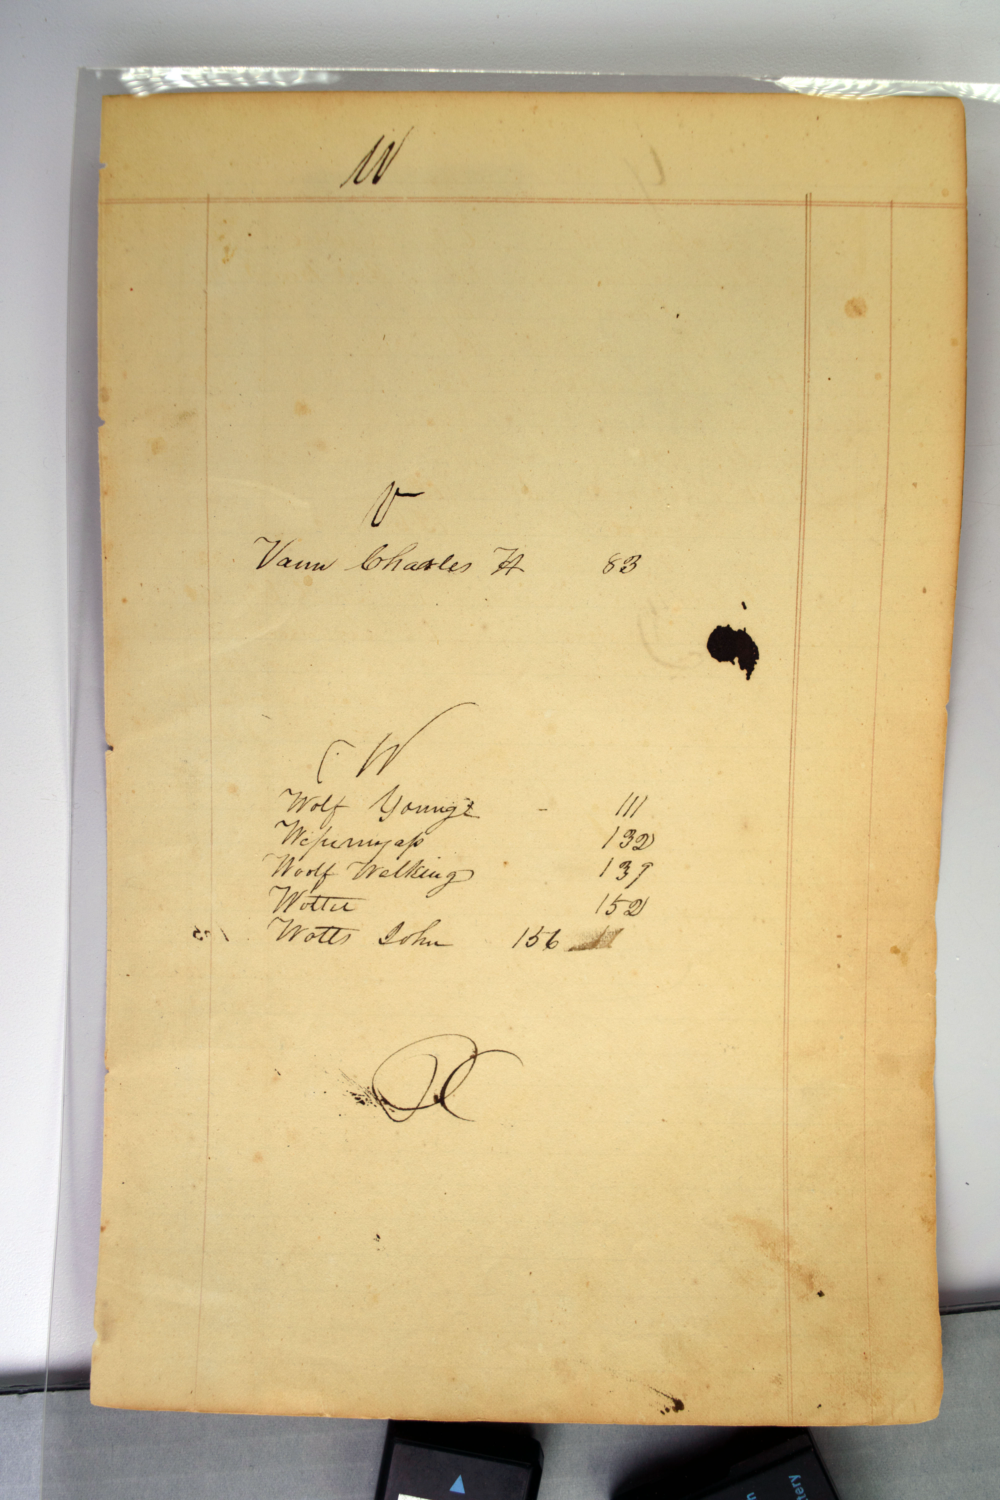 W
V
Vann Charles H 83
W
Wolf Young - 111
132
Woolf Walking 139
Wottie 152
Watts John 156
X